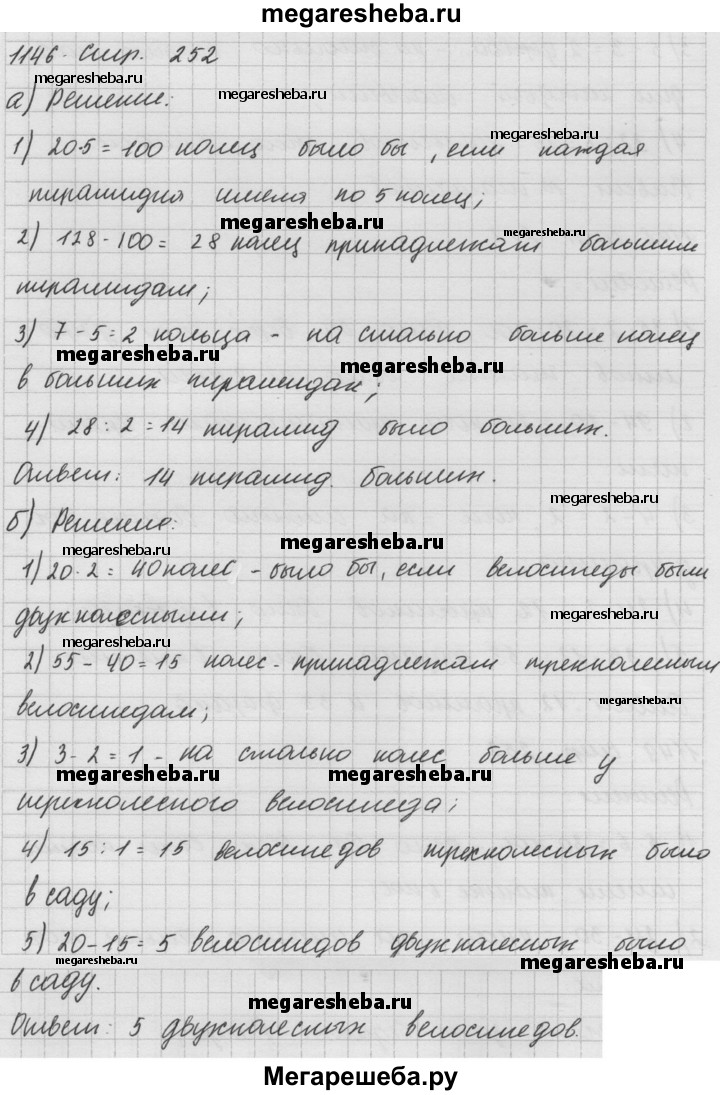 megaresheba.ru
1146. стр. 252
megaresheba.ru
а) Решение:
megaresheba.ru
megaresheba.ru
1) 20·5 = 100 колец было бы, если каждая
пирамидка имела по 5 колец;
megaresheba.ru
megaresheba.ru
2) 128 - 100 = 28 колец принадлежат большим
пирамидам;
3) 7 - 5 = 2 кольца - на столько больше колец
megaresheba.ru
megaresheba.ru
в больших пирамидах;
megaresheba.ru
4) 28 : 2 = 14 пирамид было больших.
Ответ: 14 пирамид больших.
megaresheba.ru
б) Решение:
megaresheba.ru
megaresheba.ru
1) 20·2 = 40 колес - было бы, если велосипеды были
двухколесными;
megaresheba.ru
megaresheba.ru
2) 55 - 40 = 15 колес - принадлежат трехколесным
megaresheba.ru
велосипедам;
3) 3 - 2 = 1 - на столько колес больше у
megaresheba.ru
megaresheba.ru
трехколесного велосипеда;
4) 15 : 1 = 15 велосипедов трехколесных было
megaresheba.ru
в саду;
5) 20 - 15 = 5 велосипедов двухколесных было
megaresheba.ru
megaresheba.ru
в саду.
megaresheba.ru
Ответ: 5 двухколесных велосипедов.
Мегарешеба.ру